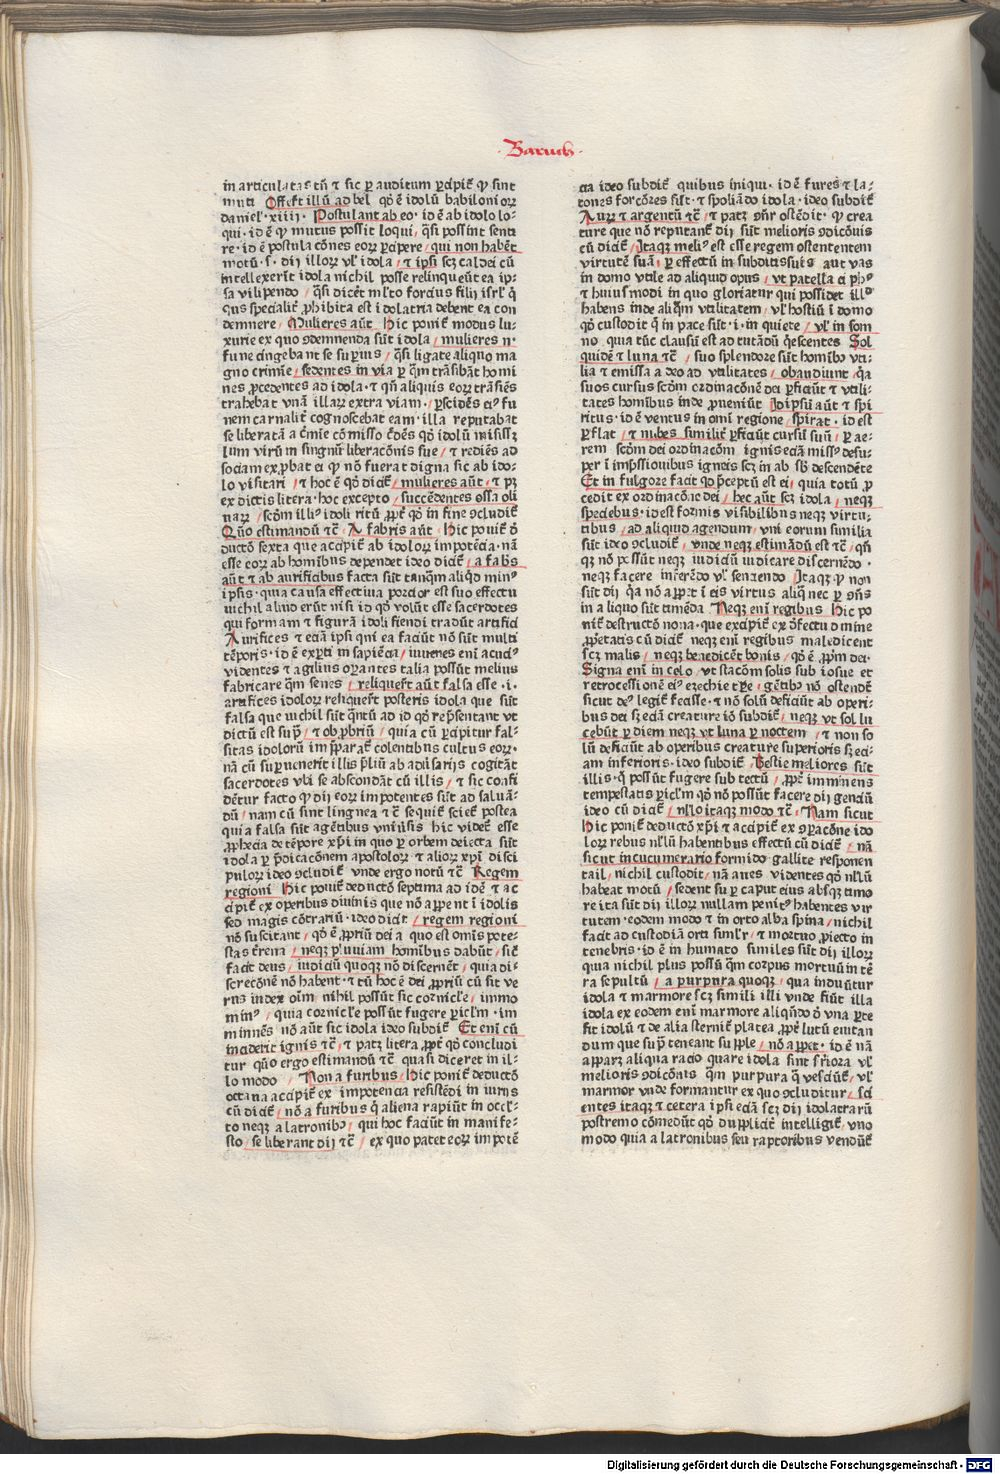 ·Baruch·
in articulatas tū ⁊ sic ꝑ auditum ꝑcipit̄ ꝙ sint
muti Offert̄ illū ad bel qḋ ē idolū babilonioꝝ
daniel·xiiii· Postulant ab eo·id ē ab idolo lo-
qui·id ē ꝙ mutus possit loqui, q̄si possint senti
re·id ē postulacōnes eoꝝ ꝑcipere, qui non habēt
motū·s·dij illoꝝ vl̄ idola, ⁊ ipsi scꝫ caldei cū
intellexerīt idola nichil posse relinqueūt ea ip-
sa vilipendo, q̄si dicēt ml̄to forcius filij isrl̄ q̄
demnere, Mulieres aūt Hic ponit̄ modus lu-
xurie ex quo ꝯdemnenda sūt idola, mulieres n·
fune cingebant se superius, q̄si ligate aliquo ma
gno crimīe, sedentes in via ꝑ q̄m trāsibāt homi
nes ꝓcedentes ad idola·⁊ qn̄ aliquis eoꝝ trāsiēs
trahebat vnā illaꝝ extra viam, ꝑscidēs eiꝰ fu
nem carnalit̄ cognoscebat eam·illa reputabat
lum virū in singnū liberacōnis sue, ⁊ rediēs ad
sociam exꝓbat ei ꝙ nō fuerat digna sic ab ido-
lo visitari, ⁊ hoc ē qḋ dicit̄, mulieres aūt, ⁊ pꝫ
ex dictis litera·hoc excepto, succēdentes ossa oli
naꝝ, scḋm illiꝰ idoli ritū, ꝓpt̄ qḋ in fine ꝯcludit̄
Quō estimandū ⁊c̄· A fabris aūt, Hic ponit̄ d̄
ductō sexta que accipit̄ ab idoloꝝ impotēcia·nā
esse eoꝝ ab hoībus dependet ideo dicit̄, a fabs̄
aūt ⁊ ab aurificibus facta sūt tanq̄m aliqḋ minꝰ
ipsis·quia causa effectiua pocior est suo effectu
nichil aliud erūt nisi id qḋ volūt esse sacerdotes
qui formam ⁊ figurā idoli fiendi tradūt artifici
Aurifices ⁊ eciā ipsi qui ea faciūt nō sūt multi
tēporis·id ē exꝑti in sapiēcia, iuuenes eni acuciꝰ
videntes ⁊ agilius oꝑantes talia possūt melius
fabricare q̄m senes, reliquerūt aūt falsa esse·i·
artifices idoloꝝ reliquerūt posteris idola que sūt
falsa que nichil sūt q̄ntū ad id qḋ rep̄sentant vt
dictū est sup̄, ⁊ obꝓbriū, quia cū ꝑcipitur fal-
nā cū superuenerit illis p̄liū ab adūsarijs cogitāt
sacerdotes vbi se abscondāt cū illis, ⁊ sic confi
dētur facto ꝙ dij eoꝝ impotentes sūt ad saluā-
dū, nam cū sint lingnea ⁊c̄ sequit̄ sciet̄ postea
quia falsa sūt agētibus vniūsis hic videt̄ esse
ꝓphecia de tēpore xp̄i in quo ꝑ orbem deiecta sūt
idola ꝑ p̄dicacōnem apostoloꝝ ⁊ alioꝝ xp̄i disci
puloꝝ ideo ꝯcludit̄ vnde ergo notū ⁊c̄ Regem
regioni Hic ponit̄ deductō septima ad idē ⁊ ac
cipit̄ ex operibus diuinis que nō apparent ī idolis
sed magis cōtrariū·ideo dicit̄, regem regioni
nō suscitant, qḋ ē ꝓpriū dei a quo est om̄is pote-
stas t̄rena, neqꝫ pluuiam homībus dabūt, sic̄
facit deus, iudiciū quoqꝫ nō discernēt, quia di-
screcōnē nō habent·⁊ tū hoc ē dei ꝓpriū cū sit ve
rus index oīm, nihil possūt sic cornicl̄e, immo
minꝰ, quia cornicl̄e possūt fugere ꝑicl̄m·im
minnēs nō aūt sic idola ideo subdit̄ Et eni cū
inciderit ignis ⁊c̄, ⁊ patꝫ litera, ꝓpt̄ qḋ concludi
tur quō ergo estimandū ⁊c̄ quasi diceret in il-
lo modo, Non a furibus, Hic ponit̄ deductō
octaua accipit̄ ex impotencia resistēdi in iuriis
cū dicit̄, nō a furibus q̄ aliena rapiūt in occl̄-
to neqꝫ a latronibꝫ, qui hoc faciūt in manife-
sto, se liberant dij ⁊c̄, ex quo patet eoꝝ impotē
cia ideo subdit̄ quibus iniqui·id ē fures ⁊ la-
trones forciores sūt·⁊ spoliādo idola·ideo subdit̄
Auꝝ ⁊ argentū ⁊c̄, ⁊ patꝫ sn̄r ostēdit̄ ꝙ crea
ture que nō reputant̄ dij sūt melioris ꝯdicōnis
cū dicit̄, Itaqꝫ meliꝰ est esse regem ostententem
virtutē suā, ꝑ effectū in subditis suis aut vas
in domo vtile ad aliquid opus, vt patella
⁊ huiusmodi in quo gloriatur qui possidet illḋ
habens inde aliq̄m vtilitatem, vl̄ hostiū ī domo
qḋ custodit q̄ in pace sūt·i·in quiete, vl̄ in som
no quia tūc clausū est ad tutādū q̄escentes Sol
quidē ⁊ luna ⁊c̄, suo splendore sūt homībꝫ vti-
lia ⁊ emissa a deo ad vtilitates, obaudiunt, q̄a
suos cursus scḋm ordinacōnē dei ꝑficiūt ⁊ vtili-
tates hominibus inde ꝓueniūt Idipsū aūt ⁊ spi
ritus·id ē ventus in omni regione, spirat·id est
ꝑflat, ⁊ nubes similit̄ ꝑficiūt cursū suū, ꝑ ae-
rem scḋm dei ordinacōm ignis eciā missꝰ desu-
per ī imp̄ssionibus igneis scꝫ in ab sb̄ descendēte
Et in fulgore facit qḋ p̄ceptū est ei, quia totū ꝓ
cedit ex ordinacōne dei, hec aūt scꝫ idola, neqꝫ
speciebus·id est formis visibilibus neqꝫ virtu-
tibus, ad aliquid agendum, vni eorum similia
sūt ideo ꝯcludit̄, vnde neqꝫ estimādū est ⁊c̄, qn̄
qꝫ nō possūt neqꝫ iudiciū iudicare discernēdo·
neqꝫ facere inferēdo vl̄ senciendo Itaqꝫ ꝙ non
sūt dij q̄a nō apparet ī eis virtus aliq̄ nec ꝑ ꝯn̄s
in aliquo sūt timēda, Neqꝫ eni regibus Hic po
nit̄ destructō nona·que excipit̄ ex d̄fectu domine
ꝓprietatis cū dicit̄ neqꝫ eni regibus maledicent
scꝫ malis, neqꝫ benedicēt bonis, qḋ ē ꝓpriū dei·
Signa eni in celo, vt stacōm solis sub iosue et
retrocessionē eiꝰ ezechie tꝑe, gētibꝫ nō ostendt̄
sicut deꝰ legit̄ fecisse·⁊ nō solū deficiūt ab operi-
bus dei sꝫ eciā creature iō subdit̄, neqꝫ vt sol lu
cebūt ꝑ diem neqꝫ vt luna ꝑ noctem, ⁊ non so
lū deficiūt ab operibus creature superioris sꝫ eci-
am inferioris·ideo subdit̄, Bestie meliores sūt
illis·q̄ possūt fugere sub tectū, ꝓpt̄ imminens
tempestatis ꝑicl̄m qḋ nō possūt facere dij genciū
ideo cū dicit̄, nl̄lo itaqꝫ modo ⁊c̄, Nam sicut
Hic ponit̄ deductō xp̄i ⁊ accipit̄ ex ꝯꝑacōne ido
loꝝ rebus nl̄lū habentibus effectū cū dicit̄, nā
sicut in cucumerario formido gallite responen
tail, nichil custodit, nā aues videntes qḋ nl̄lū
habeat motū, sedent super caput eius absqꝫ timo
re ita sūt dij illoꝝ nullam penitꝰ habentes vir
tutem·eodem modo ⁊ in orto alba spina, nichil
facit ad custodiā orti siml̄r, ⁊ mortuo ꝓiecto in
tenebris·id ē in humato similes sūt dij illoꝝ
quia nichil plus possūt q̄m corpus mortuū in tē
ra sepultū, a purpura quoqꝫ, qua induūtur
idola ⁊ marmore scꝫ simili illi vnde fiūt illa
idola ex eodem eni marmore aliqn̄do d̄ vna ꝑte
fit idolū ⁊ de alia sternit̄ platea, ꝓpt̄ lutū euitan
dum que sup̄ teneant supple, nō apparet·id ē nā
apparꝫ aliqua racio quare idola sint sr̄iora vl̄
melioris ꝯdicōnis q̄m purpura q̄ vesciūt̄, vl̄
marmor vnde formantur ex quo ꝯcluditur, sci
entes itaqꝫ ⁊ cetera ipsi eciā scꝫ dij idolatrarū
postremo cōmedūt qḋ duplicit̄ intelligit̄, vno
modo quia a latronibus seu raptoribus vendūt̄
Digitalisierung gefördert durch die Deutsche Forschungsgemeinschaft - DFG